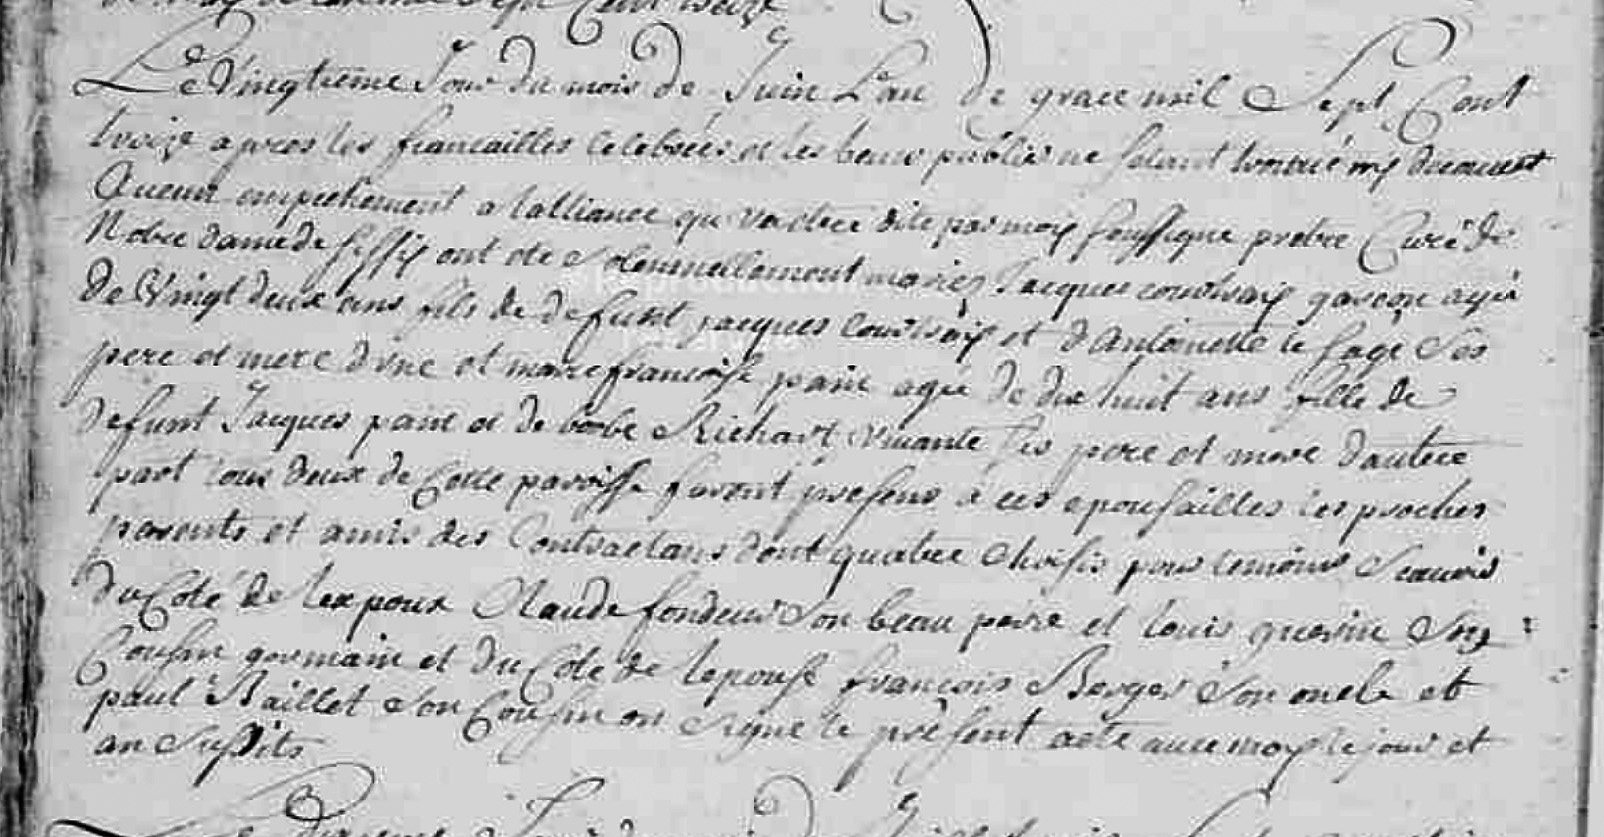 Le Vingtieme Jour du mois de Juin L'an de grace mil Sept Cent
treize apres les fiancailles celebrées et les bans publié ne setant trouvé ny decouvert
Aucun empechement a lalliance qui va etre dite par moy soussigne pretre Curé de
Notre dame de fissy ont ete solemnellement mariez Jacques courtois garcon agé
de Vingt deux ans fils de defunt jacques Courtois et d'Antoinette le sage Ses
pere et mere d'une et marie francoise paine agée de dix huit ans fille de
defunt Jacques paine et de barbe Richart vivante ses pere et mere d'autre
part tous deux de Cette paroisse furent presens a ces epousailles les proches
parents et amis des Contractans dont quatre choisis pour temoins Scavoir
du Coté de lexpoux Claude fondeur Son beau pere et louis guerin Son
Cousin germain et du Coté de lepouse francois Berger Son oncle et
paul Baillet Son Cousin on signe le present acte avec moy le jour et
an Susdits